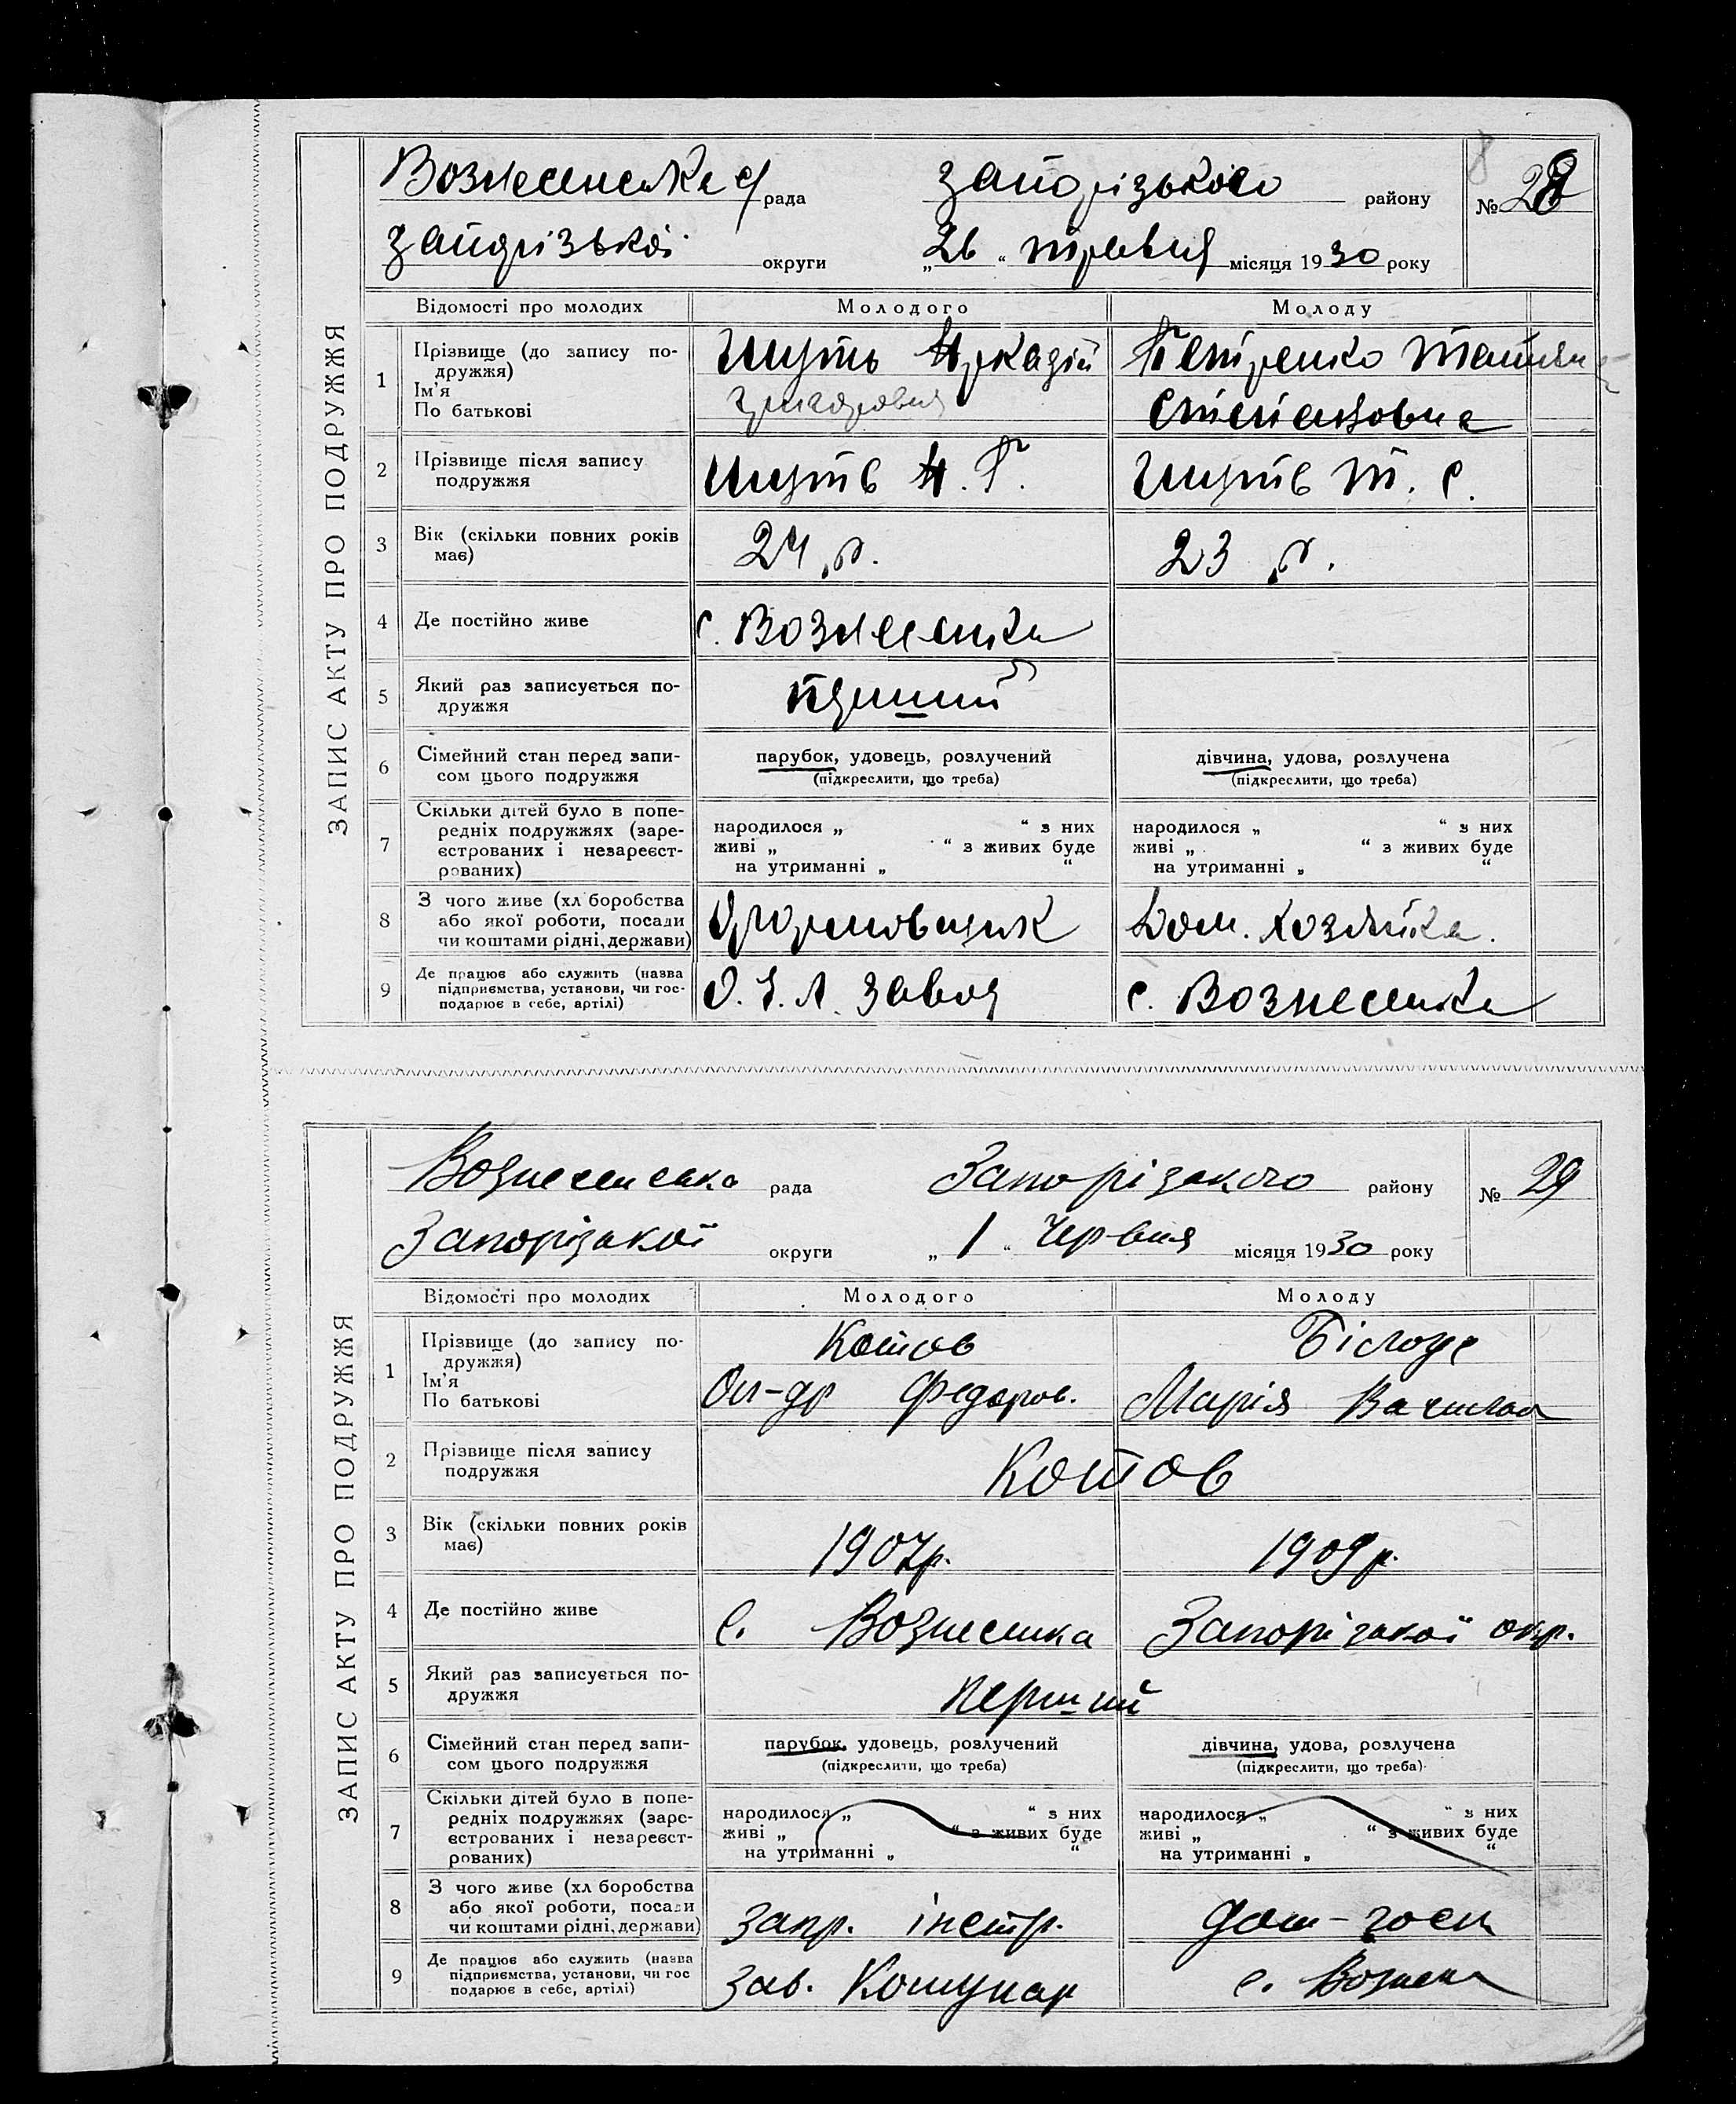 ЗАПИС АКТУ ПРО ПОДРУЖЖЯ
Вознесенська рада Запорізького району № 28
Запорізької округи „26“ травня місяця 1930 року
Відомості про молодих Молодого Молоду
1 Прізвище (до запису по-
дружжя)
Ім'я
По батькові
Аркадій
Григорович
Петренко Татьяна
Степановна
2 Прізвище після запису
подружжя
А. Г.
Т. С.
3 Вік (скільки повних років
має)
24 р. 23 р.
4 Де постійно живе с. Вознесенка
5 Який раз записується по-
дружжя
перший
6 Сімейний стан перед запи-
сом цього подружжя
парубок, удовець, розлучений
(підкреслити, що треба)
дівчина, удова, розлучена
(підкреслити, що треба)
7 Скільки дітей було в попе-
редніх подружжях (заре-
єстрованих і незареєст-
рованих)
народилося „ “ з них
живі „ “ з живих буде
на утриманні „ “
народилося „ “ з них
живі „ “ з живих буде
на утриманні „ “
8 З чого живе (хлiборобства
або якої роботи, посади
чи коштами рідні, держави)
Формовщик Дом. хозяйка.
9 Де працює або служить (назва
підприємства, установи, чи гос-
подарює в себе, артілі)
завод с. Вознесенка
ЗАПИС АКТУ ПРО ПОДРУЖЖЯ
Вознесенська рада Запорізького району № 29
Запорізької округи „1“ Червня місяця 1930 року
Відомості про молодих Молодого Молоду
1 Прізвище (до запису по-
дружжя)
Ім'я
По батькові
Котов
Ол-др Федоров.
Марія
2 Прізвище після запису
подружжя
Котов
3 Вік (скільки повних років
має)
1907р. 1909р.
4 Де постійно живе с. Вознесенка Запорізької окр.
5 Який раз записується по-
дружжя
перший
6 Сімейний стан перед запи-
сом цього подружжя
парубок, удовець, розлучений
(підкреслити, що треба)
дівчина, удова, розлучена
(підкреслити, що треба)
7 Скільки дітей було в попе-
редніх подружжях (заре-
єстрованих і незареєст-
рованих)
народилося „ “ з них
живі „ “ з живих буде
на утриманні „ “
народилося „ “ з них
живі „ “ з живих буде
на утриманні „ “
8 З чого живе (хлiборобства
або якої роботи, посади
чи коштами рідні, держави)
інстр. дом-госп
9 Де працює або служить (назва
підприємства, установи, чи гос
подарює в себе, артілі)
зав. Комунар с. Вознесн